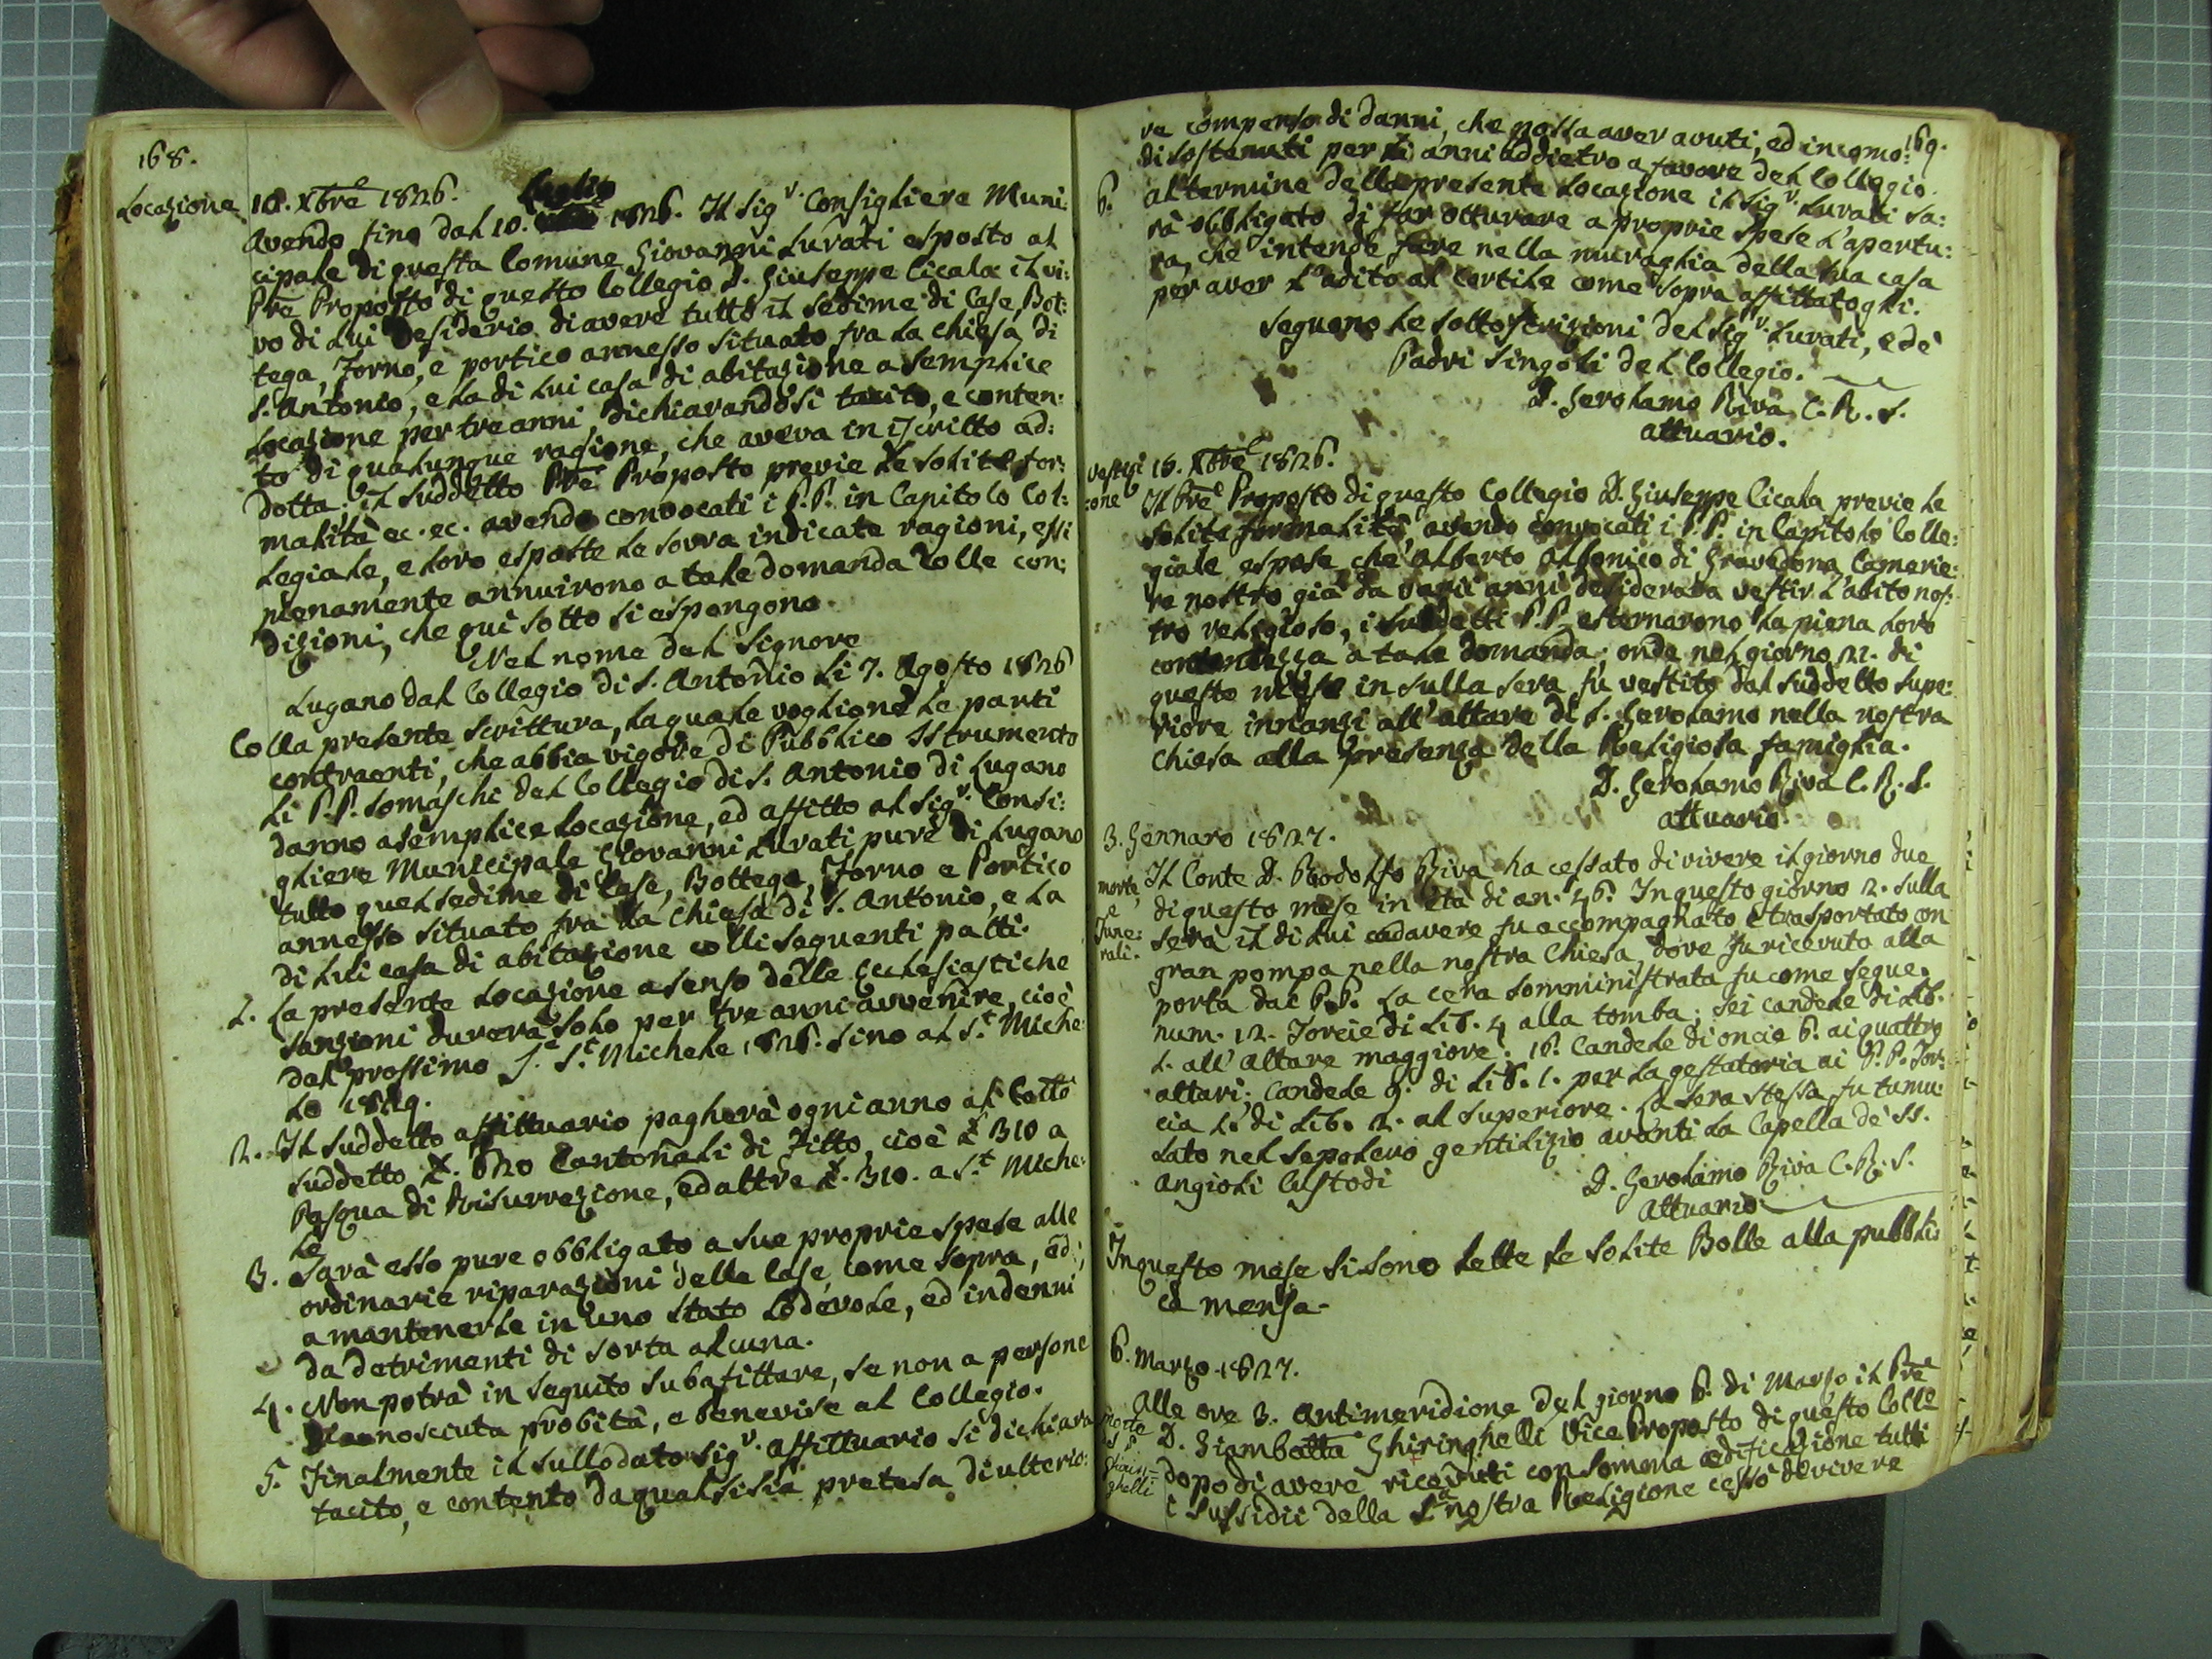 168.
Locazione
10. Xbre 1826.
Avendo fino dal 10. Luglio 1826. Il Sigr. Consigliere Muni:
cipale di questa Comune Giovanni Lurati esposto al
Pre Proposto di questo Collegio D. Giuseppe Cicala il vi:
vo di lui desiderio di avere tutto il sedime di Case, Bot:
tega, Forno, e portico annesso situato fra la Chiesa di
S. Antonio, e la di lui casa di abitazione a semplice
Locazione per tre anni, dichiarandosi tacito, e conten:
to di qualunque ragione, che aveva in iscritto ad:
dotta; il suddetto Pre Proposto previe le solite for:
malità ec. ec. avendo convocati i P.P. in Capitolo Col:
legiale, e loro esposte le sovra indicate ragioni, essi
pienamente annuirono a tale domanda colle con:
dizioni, che qui sotto si espongono.
Nel nome del Signore
Lugano dal Collegio di S. Antonio li 7. Agosto 1826
Colla presente Scrittura, la quale vogliono le parti
contraenti, che abbia vigore di Pubblico Istrumento
li P.P. Somaschi del Collegio di S. Antonio di Lugano
danno a semplice locazione, ed affitto al Sigr. Consi:
gliere Municipale Giovanni Lurati pure di Lugano
tutto quel sedime di Case, Bottega, Forno e Portico
annesso situato fra la Chiesa di S. Antonio, e la
di lui casa di abitazione colli seguenti patti.
1. La presente Locazione a senso delle Ecclesiastiche
Sanzioni durerà solo per tre anni avvenire, cioè
dal prossimo St. Michele 1826. sino al St. Miche
le 1829.
2. Il suddetto affittuario pagherà ogni anno al Collo
suddetto £. 620 Cantonali di Fitto, cioè £ 310 a
Pasqua di Risurrezione, ed altre £. 310. a St. Miche:
le
3. Sarà esso pure obbligato a sue proprie spese alle
ordinarie riparazioni delle Case, come sopra, ed
a mantenerle in uno stato lodevole, ed indenni
da detrimenti di sorta alcuna.
4. Non potrà in seguito subaffittare, se non a persone
conosciuta probità, e benevise al Collegio.
5. Finalmente il sullodato Sigr. affittuario si dichiara
tacito, e contento da qualsisia pretesa di ulterio:
169.
re compenso di danni, che possa aver avuti, ed incomo:
di sostenuti per li anni addietro a favore del Collegio.
6. al termine della presente Locazione il Sigr. Lurati sa:
rà obbligato di far otturare a proprie spese l'apertu:
ra, che intende fare nella muraglia della sua casa
per aver l'adito al Cortile come sopra affittatogli.
Seguono le sottoscrizioni del Sigr. Lurati, e de'
Padri Singoli del Collegio.
D. Gerolamo Riva C.R.S.
attuario.
Vestizi
one
Xbre 1826.
Il Pre Proposto di questo Collegio D. Giuseppe Cicala previe le
solite formalità, avendo convocati i P.P. in Capitolo Colle:
giale espose che Alberto Albonico di Gravedona Camerie:
re nostro già da varii anni desiderava vestir l'abito nos:
tro religioso, i suddetti P.P. esternarono la piena loro
contentezza a tale domanda; onde nel giorno 21. di
questo mese in sulla sera fu vestito dal suddetto Supe:
riore innanzi all'altare di S. Gerolamo nella nostra
Chiesa alla presenza della Religiosa famiglia.
D. Gerolamo Riva C.R.S.
attuario.
3. Gennaro 1827.
morte,
e
Fune:
rali.
Il Conte D. Rodolfo Riva ha cessato di vivere il giorno due
di questo mese in età di an. 46. In questo giorno 2. sulla
sera il di lui cadavere fu accompagnato e trasportato con
gran pompa nella nostra Chiesa, dove fu ricevuto alla
porta dai P.P. La cera somministrata fu come segue.
num. 12. Torcie di Lib. 4 alla tomba; sei candele di Lib.
1. all'altare maggiore; 16. Candele di oncie 6. ai quattro
altari; Candele 9. di Lib. 1. per la gestatoria ai P.P. Tor:
cia 1. di Lib. 2. al Superiore. La sera stessa fu tumu:
lato nel sepolcro gentilizio avanti la Capella de' SS.
Angioli Custodi
D. Gerolamo Riva C.R.S.
attuario.
In questo mese si sono lette le solite Bolle alla pubbli:
ca mensa.
6. Marzo 1827.
morte
Ghirin=
ghelli
Alle ore 3. Antimeridione del giorno 6. di Marzo il Pre
D. Giambatta Ghiringhelli Vice Proposto di questo Collo
dopo di avere ricevuti con somma edificazione tutti
i sussidii della Sa nostra Religione cessò di vivere